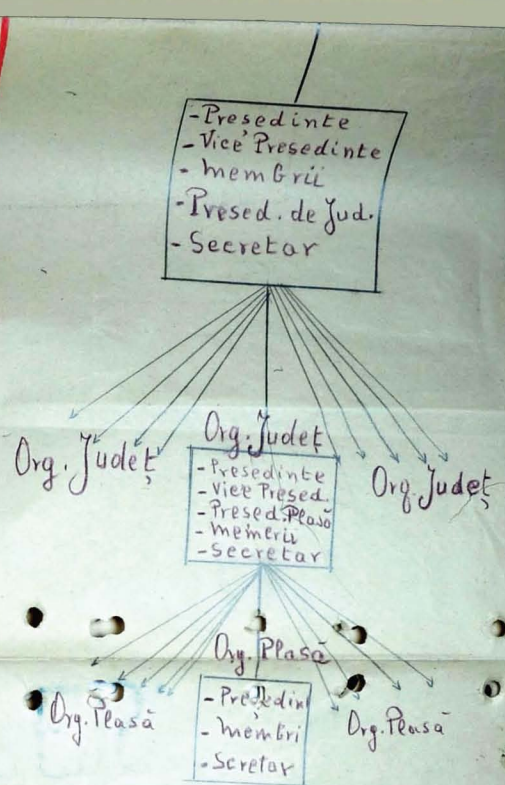 - Presedinte
- Vice Presedinte
- membrii
- Presed. de Jud.
- Secretar
Org. Județ
Org. Județ
Org. Județ
- Presedinte
- Vice Presed.
- Presed. Plasă
- membrii
- Secretar
Org. Plasă
Org. Plasă
Org. Plasă
- Președin
- membri
- Secretar